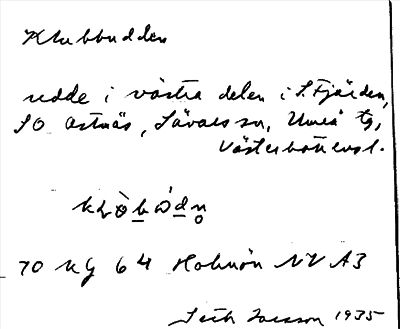 Klubbudden
udde i västra delen i S. Fjärden,
SO Ostnäs, Sävars sn, Umeå tg,
Västerbottensl.
70 Kg 64 Holmön NV A3
1935